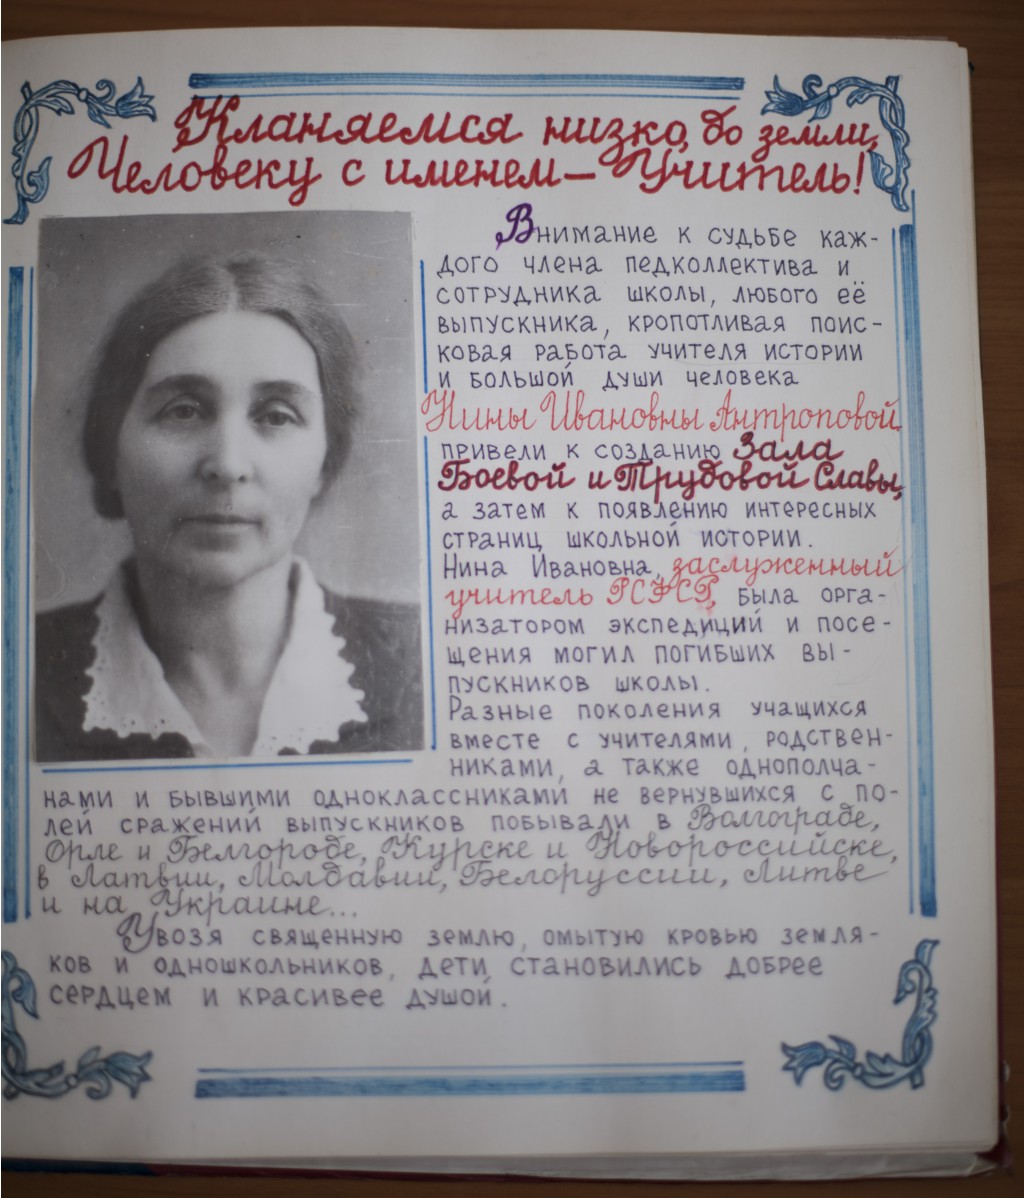 Кланяемся низко, до земли,
Человеку с именем — Учитель!
Внимание к судьбе каж-
дого члена педколлектива и
сотрудника школы, любого её
выпускника, кропотливая поис-
ковая работа учителя истории
и большой души человека
Нины Ивановны Антроповой
привели к созданию Зала
Боевой и Трудовой Славы,
а затем к появлению интересных
страниц школьной истории.
Нина Ивановна, заслуженный
учитель РСФСР, была орга-
низатором экспедиций и посе-
щения могил погибших вы-
пускников школы.
Разные поколения учащихся
вместе с учителями, родствен-
никами, а также однополча-
нами и бывшими одноклассниками не вернувшихся с по-
лей сражений выпускников побывали в Волгограде,
Орле и Белгороде, Курске и Новороссийске,
в Латвии, Молдавии, Белоруссии, Литве
и на Украине...
Увозя священную землю, омытую кровью земля-
ков и одношкольников, дети становились добрее
сердцем и красивее душой.